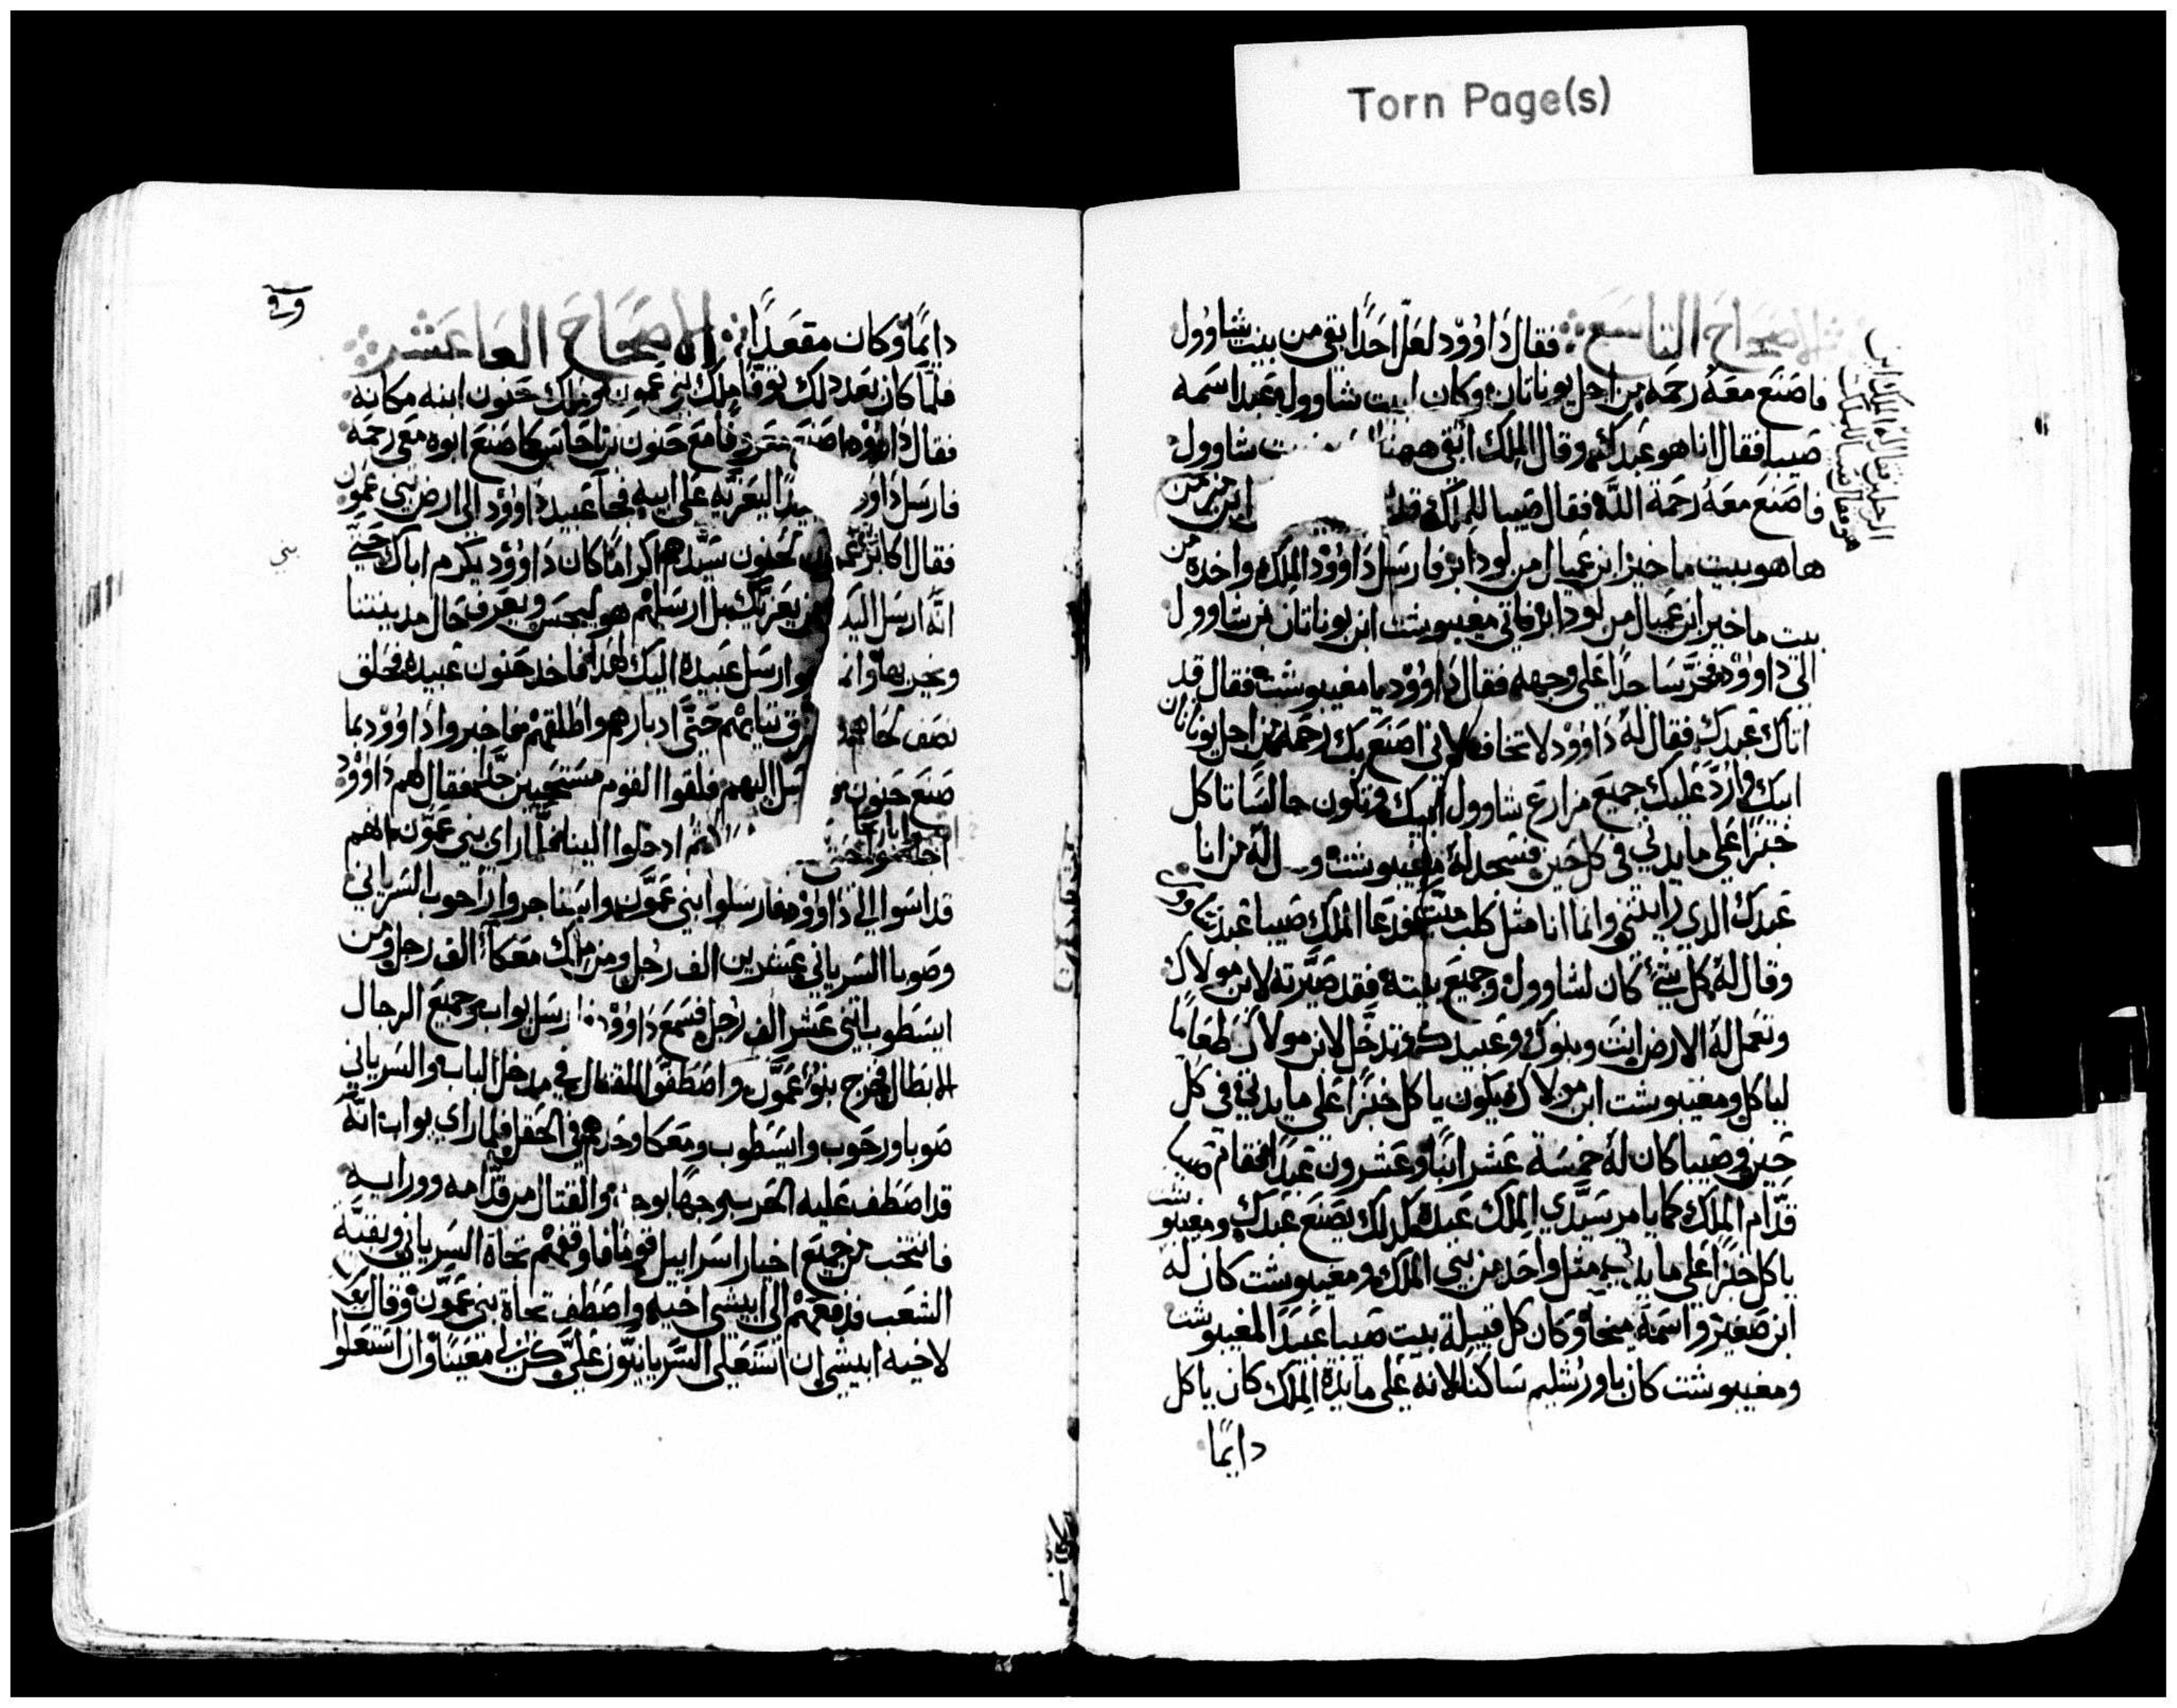 Torn Page(s)
الاصحاح التاسع فقال داوود لعل احدا بقي من بيت شاوول
فاصنع معه رحمه من اجل يوناتان وكان لبيت شاوول عبدا اسمه
صيبا فقال انا هو عبدك وقال الملك ابقي ههنا بيت شاوول
فاصنع معه رحمة الله فقال صيبا للملك قد ابن
ها هو ببيت ماخير ابن عميال من لودابر فارسل داوود الملك واخده من
بيت ماخير ابن عميال من لودابر فاتي مغيبوشت ابن يوناتان بن شاوول
الي داوود فخر ساجدا علي وجهه فقال داوود يا مغيبوشت فقال قد
اتاك عبدك فقال له داوود لا تخاف لاني اصنع بك رحمه من اجل يوناتان
ابيك وارد عليك جميع مزارع شاوول ابيك وتكون جالسا تاكل
خبزا علي مايدتي في كل حين فسجد له مغيبوشت و له من انا
عبدك الدي رايتني وانما انا مثل كلب ميت فدعا الملك صيبا عبد
وقال له كل شئ كان لشاوول وجميع بيته فقد صيرته لابن مولاك
وتعمل له الارض انت وبنوك وعبيدك وتدخل لابن مولاك طعاما
لياكل ومغيبوشت ابن مولاك فيكون ياكل خبزا علي مايدتي في كل
حين وصيبا كان له خمسة عشر ابنا وعشرون عبدا فقام صيبا
قدام الملك كما يامر سيدي الملك عبده كدلك يصنع عبدك ومغيبوشت
ياكل خبزا علي مايدتي مثل واحد من بني الملك ومغيبوشت كان له
ابن صغير واسمه ميخا وكان كل قبيلة بيت صيبا عبيدا لمغيبوشت
ومغيبوشت كان باورشليم ساكنا لانه علي مايدة الملك كان ياكل
دايما
دايما وكان مقعدا الاصحاح العاشر
فلما كان بعد دلك توفا ملك بني عمون وملك حنون ابنه مكانه
فقال داوود اصنع معروفا مع حنون بن ناحاس كما صنع ابوه معي رحمه
فارسل داوود ليعزيه علي ابيه فجا عبيد داوود الي ارض بني عمون
فقال اكابر عمون لحنون سيدهم اكراما كان داوود يكرم اباك حتي
بني
انه ارسل اليك من يعزيك بل ارسلهم هو ليجس ويعرف حال مدينتنا
ويخربها وانما ارسل عبيده اليك لهدا فاخد حنون عبيده فحلق
نصف لحاهم وخرق تيابهم حتي ادبارهم واطلقهم فاخبروا داوود بما
صنع حنون فارسل اليهم فلقوا القوم مستحيين جدا فقال لهم داوود
اجلسوا ثم ادخلوا الينا فلما راي بني عمون انهم
قد اسوا الي داوود فارسلوا بني عمون واستاجروا راحوب السرياني
وصوبا السرياني عشرين الف رجل ومن ملك معكا الف رجل ومن
ايسطوب اتني عشر الف رجل فسمع داوود فارسل يواب وجميع الرجال
الابطال فخرج بنو عمون واصطفوا للقتال في مدخل الباب والسرياني
صوبا ورحوب وايسطوب ومعكا وحدهم في الحقل فلما راي يواب انه
قد اصطف عليه الحرب وجها بوجه والقتال من قدامه وورايه
فانتخب من جميع اخيار اسراييل قوما فاوقفهم تجاه السرياني وبقية
الشعب فدفعهم الي ابيشي اخيه واصطف تجاه بني عمون وقال
لاخيه ابيشي ان استعلي السريانيون علي كن لي معينا وان استعلوا